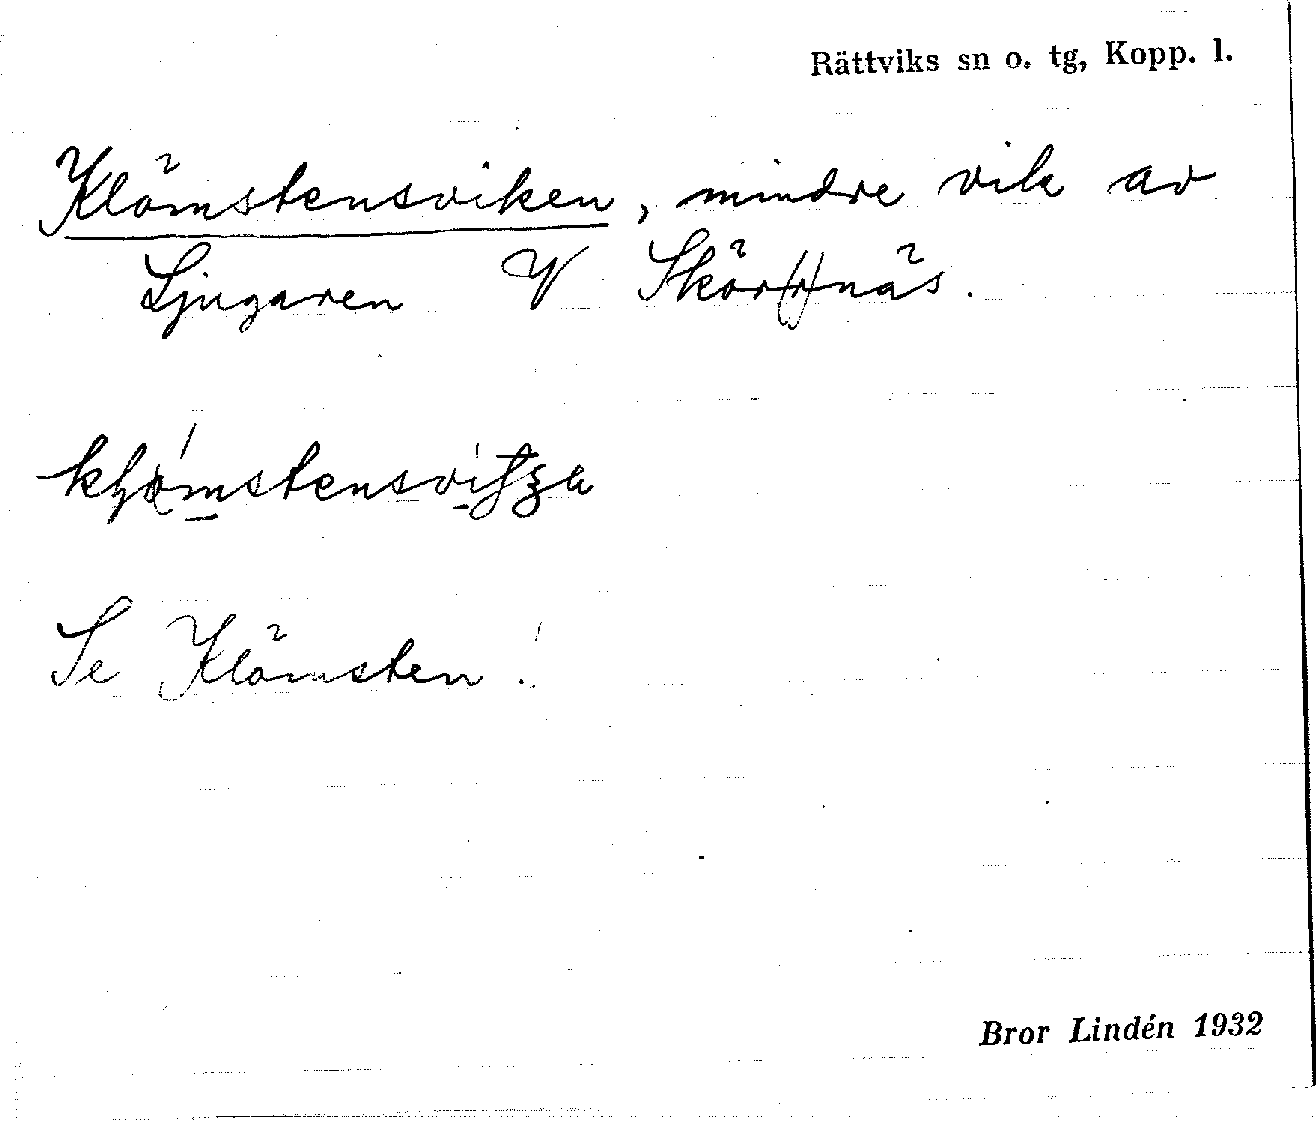 Rättviks sn o. tg, Kopp. l.
Klömstensviken, mindre vik av
Ljugaren V Skör(r)näs.
Se Klömsten!
Bror Lindén 1932